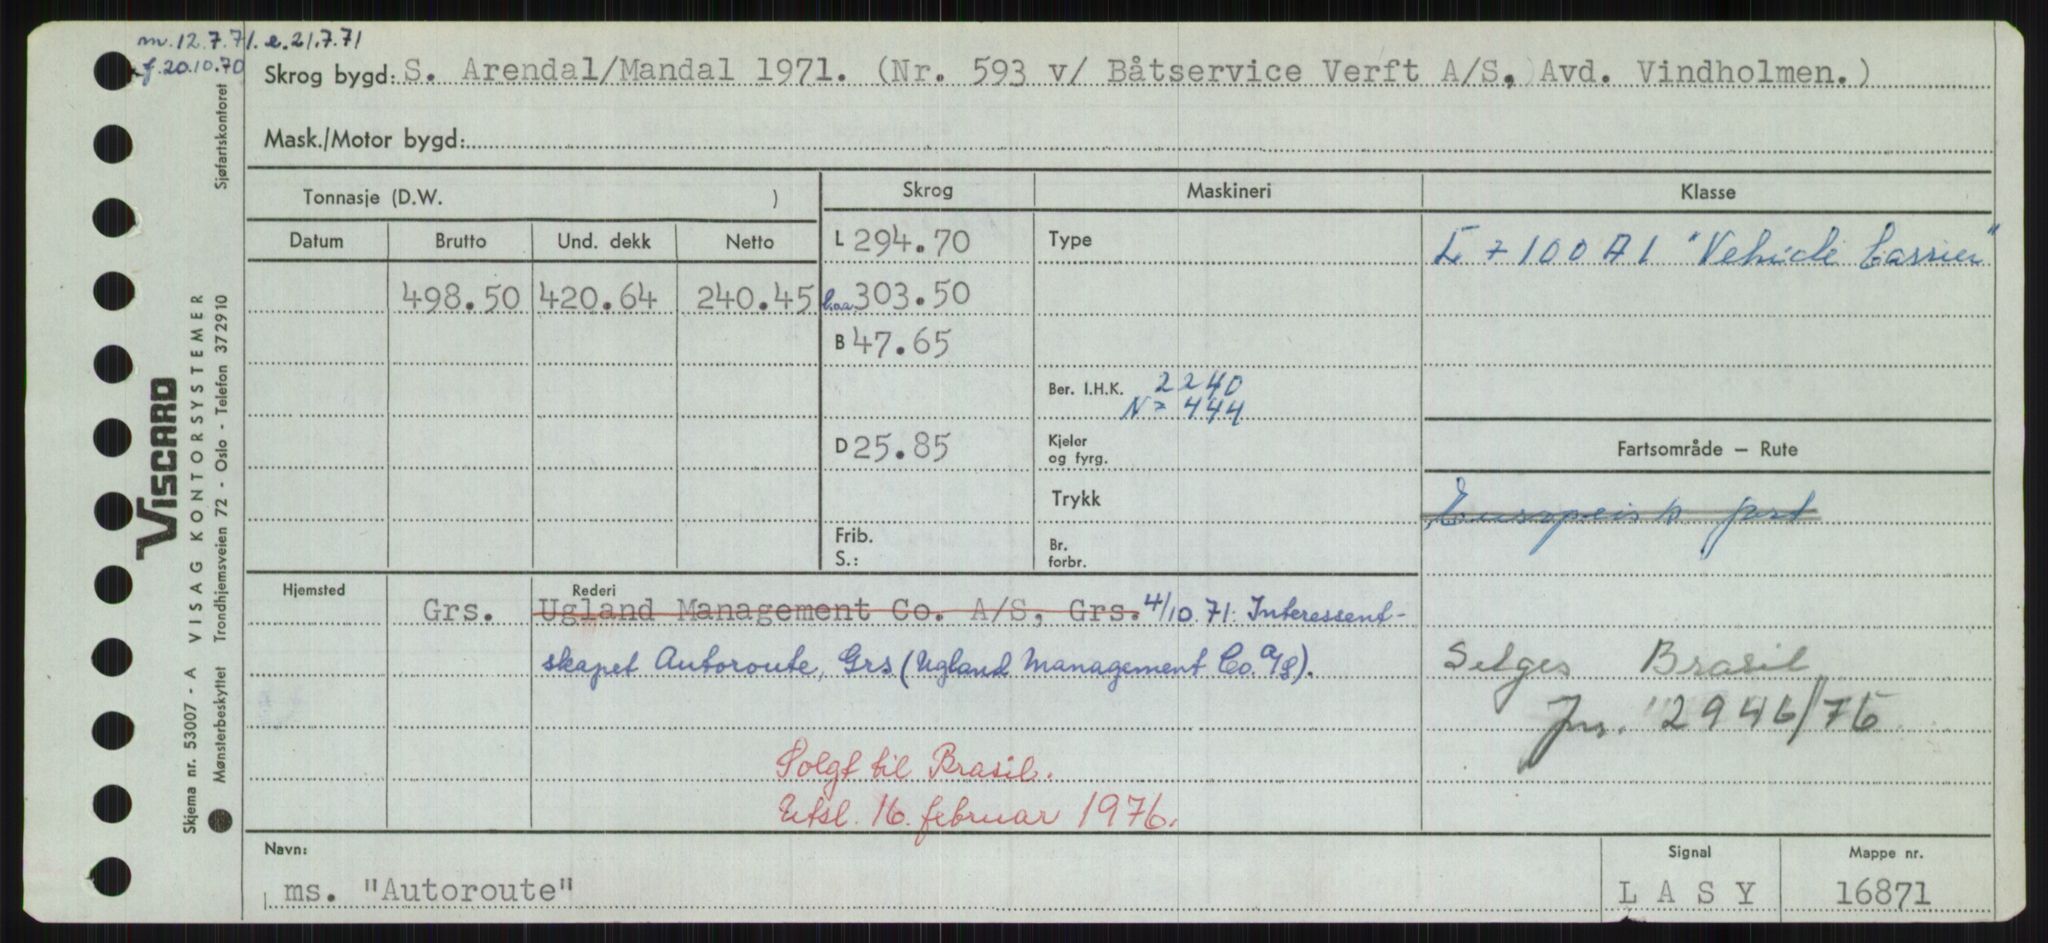 m. 12.7.71. e. 21.7.71
f. 20.10.70
Skrog bygd: S. Arendal/Mandal 1971. (Nr. 593 v/ Båtservice Verft A/S, Avd. Vindholmen.)
Mask./Motor bygd:
Tonnasje (D.W. )
Skrog
Maskineri
Klasse
Datum
Brutto
Und. dekk
Netto
L 294.70
Type
Ł + 100 A 1 "Vehicle Carrier"
498.50 420.64 240.45
L.aa. 303.50
B 47.65
Ber. I.H.K. 2240
N = 444
D 25.85
Kjeler
og fyrg.
Fartsområde – Rute
Trykk
Europeisk fart
Frib.
S.:
Br.
forbr.
Hjemsted
Rederi
Grs. Ugland Management Co. A/S, Grs. 4/10.71: Interessent-
skapet Autoroute, Grs (Ugland Management Co. A/S).
Selges Brasil
Jnr. 2946/76
Solgt til Brasil.
Utsl. 16. februar 1976.
Navn:
Signal
Mappe nr.
ms. "Autoroute"
L A S Y
16871
VISCARD
Skjema nr. 53007 - A VISAG KONTORSYSTEMER
Mønsterbeskyttet Trondhjemsveien 72 - Oslo - Telefon 372910 Sjøfartskontoret